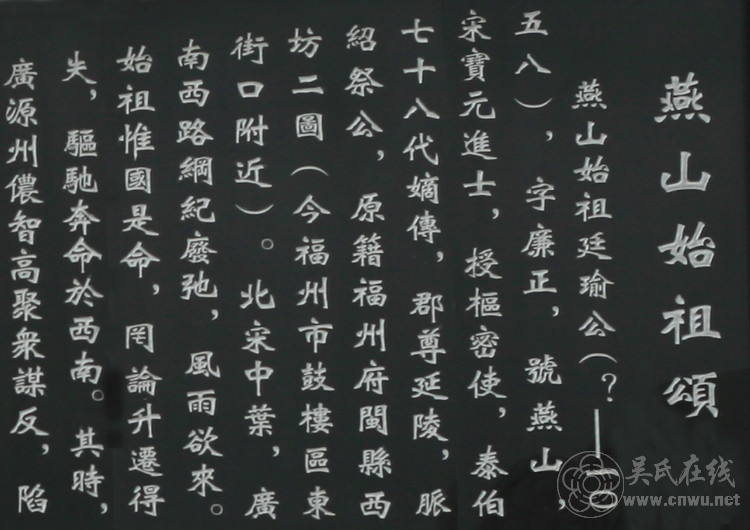 燕山始祖頌
燕山始祖廷瑜公（？——一〇
五八），字廉正，號燕山，
宋寶元進士，授樞密使，泰伯
七十八代嫡傳，郡尊延陵，脈
紹祭公，原籍福州府閩縣西
坊二圖（今福州市鼓樓區東
街口附近）。北宋中葉，廣
南西路綱紀廢弛，風雨欲來。
始祖惟國是命，罔論升遷得
失，驅馳奔命於西南。其時，
廣源州儂智高聚衆謀反，陷
吴氏在线
www.cnwu.net